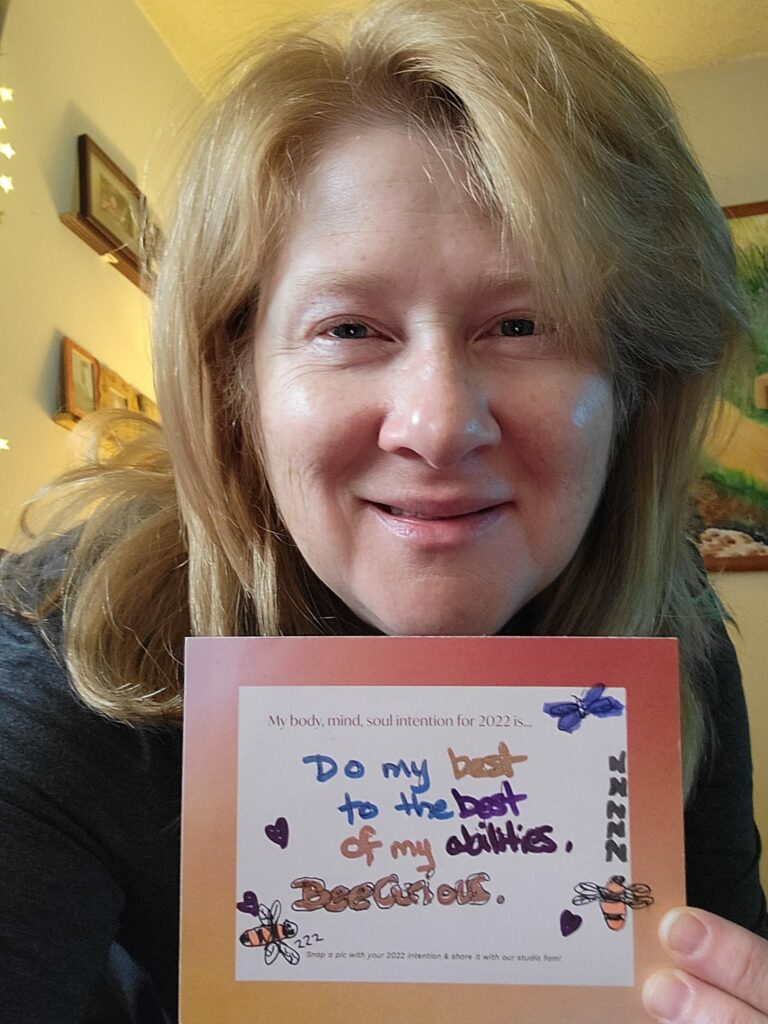 My body, mind, soul intention for 2022 is...
Do my best
to the best
of my abilities.
BeeCurious.
zzzzz
zzz
Snap a pic with your 2022 intention & share it with our studio fam!